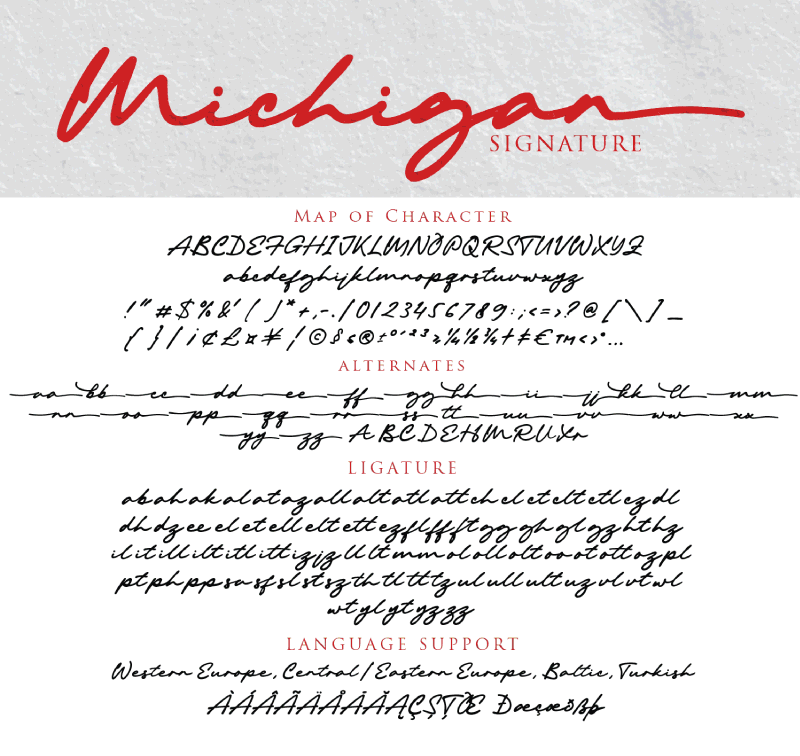 Michigan
SIGNATURE
Map of Character
ABCDEFGHIJKLMNOPQRSTUVWXYZ
abcdefghijklmnopqrstuvwxyz
!"#$%&'()*+,-./0123456789:;<=>?@[\]_
{}|¡¢£¤¥¦©
ALTERNATES
aa bb cc dd ee ff gg hh ii jj kk ll mm
nn oo pp qq rr ss tt uu vv ww xx
yy zz ABCDEHMRUXr
LIGATURE
ab ah ak al at az all alt atl att ch el et elt etl ez dl
dh dz ee el et ell elt ett ez fl ff fft gg gh gl gz ht hz
il it ill ilt itl itt iz jz ll lt mm ol oll olt oo ot ott oz pl
pt ph pp sa sf sl st sz th tl tt tz ul ull ult uz vl vt wl
wt yl yt yz zz
LANGUAGE SUPPORT
Western Europe, Central/Eastern Europe, Baltic, Turkish